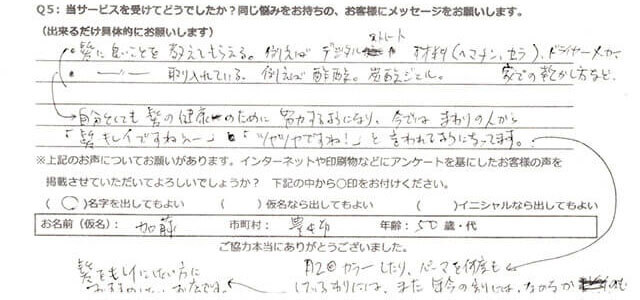 Q5：当サービスを受けてどうでしたか？同じ悩みをお持ちの、お客様にメッセージをお願いします。
（出来るだけ具体的にお願いします）
ストレート
・髪に良いことを教えてもらえる。例えばデジタル 材料（ヘマチン、セラ）、ドライヤー
・ 〃 取り入れている。例えば酢酸。炭酸ジェル。 家での乾かし方など。
→自分としても髪の健康のために努力するようになり、今ではまわりの人から
「髪キレイですねぇ〜」「ツヤツヤですね！」と言われてるようになってます。
※上記のお声についてお願いがあります。インターネットや印刷物などにアンケートを基にしたお客様の声を
掲載させていただいてよろしいでしょうか？ 下記の中から○印をお付けください。
（ ）名字を出してもよい （ ）仮名なら出してもよい （ ）イニシャルなら出してもよい
お名前（仮名）： 加藤 市町村： 豊中市 年齢：50 歳・代
ご協力本当にありがとうございました。
髪をキレイにしたい方に 月2回カラーしたり、パーマを何度も
お店です。 しているわりには、また 年令の割には、